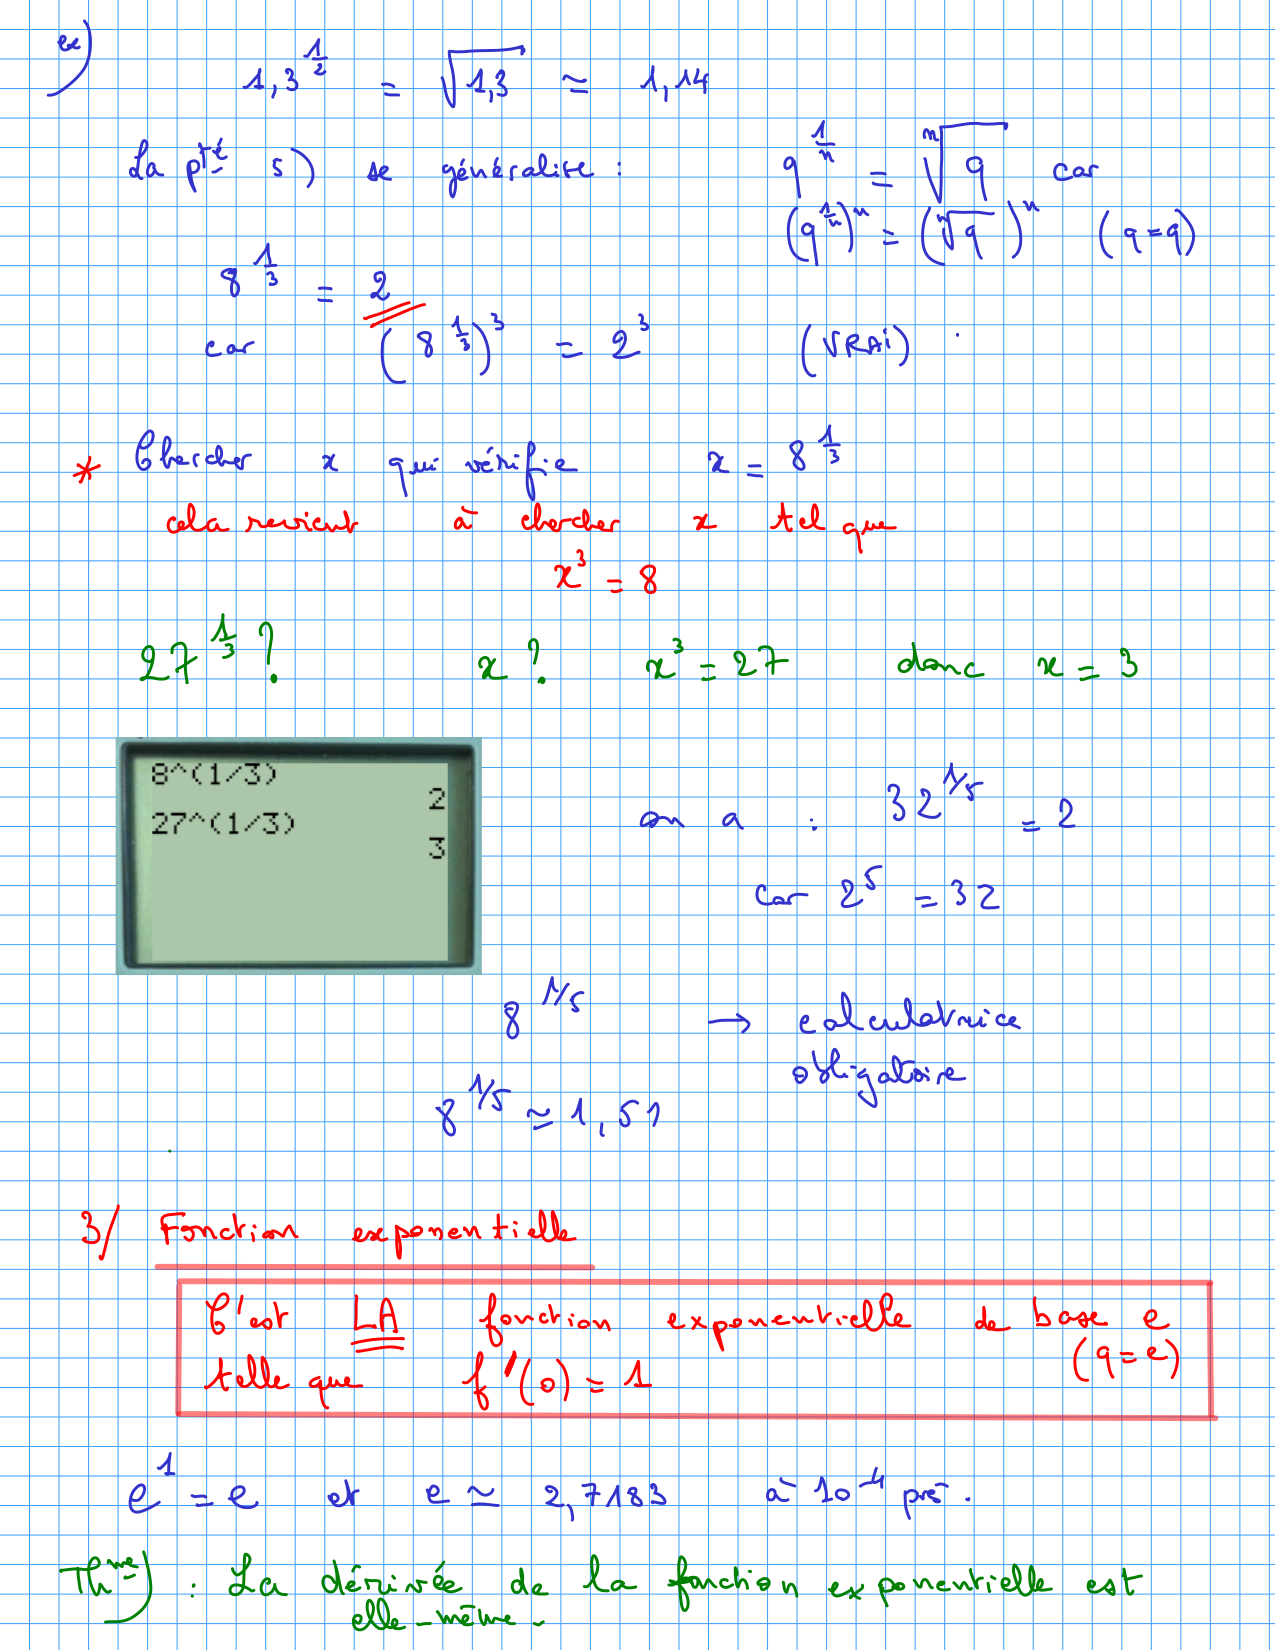 ex)
1,3^{1/2} = √1,3 ≃ 1,14
La pté 5) se généralise : q^{1/n} = ⁿ√q car
(q^{1/n})^n = (ⁿ√q)^n (q=q)
8^{1/3} = 2
car (8^{1/3})^3 = 2^3 (VRAi).
* Chercher x qui vérifie x = 8^{1/3}
cela revient à chercher x tel que
x^3 = 8
27^{1/3} ? x ? x^3 = 27 donc x = 3
8^(1/3)
2
27^(1/3)
3
on a : 32^{1/5} = 2
car 2^5 = 32
8^{1/5} → calculatrice
obligatoire
8^{1/5} ≃ 1,51
3/ Fonction exponentielle
C'est LA fonction exponentielle de base e
(q=e)
telle que f'(0) = 1
e^1 = e et e ≃ 2,7183 à 10^{-4} près.
Thme) : La dérivée de la fonction exponentielle est
elle-même.